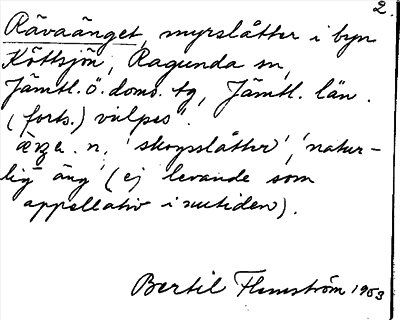 2.
Rävaänget, myrslåtter i byn
Köttsjön, Ragunda sn,
Jämtl. ö. doms. tg, Jämtl. län.
(forts.) vulpes".
n, 'skogsslåtter', 'natur-
lig äng' (ej levande som
appellativ i nutiden).
Bertil Flemström 1963